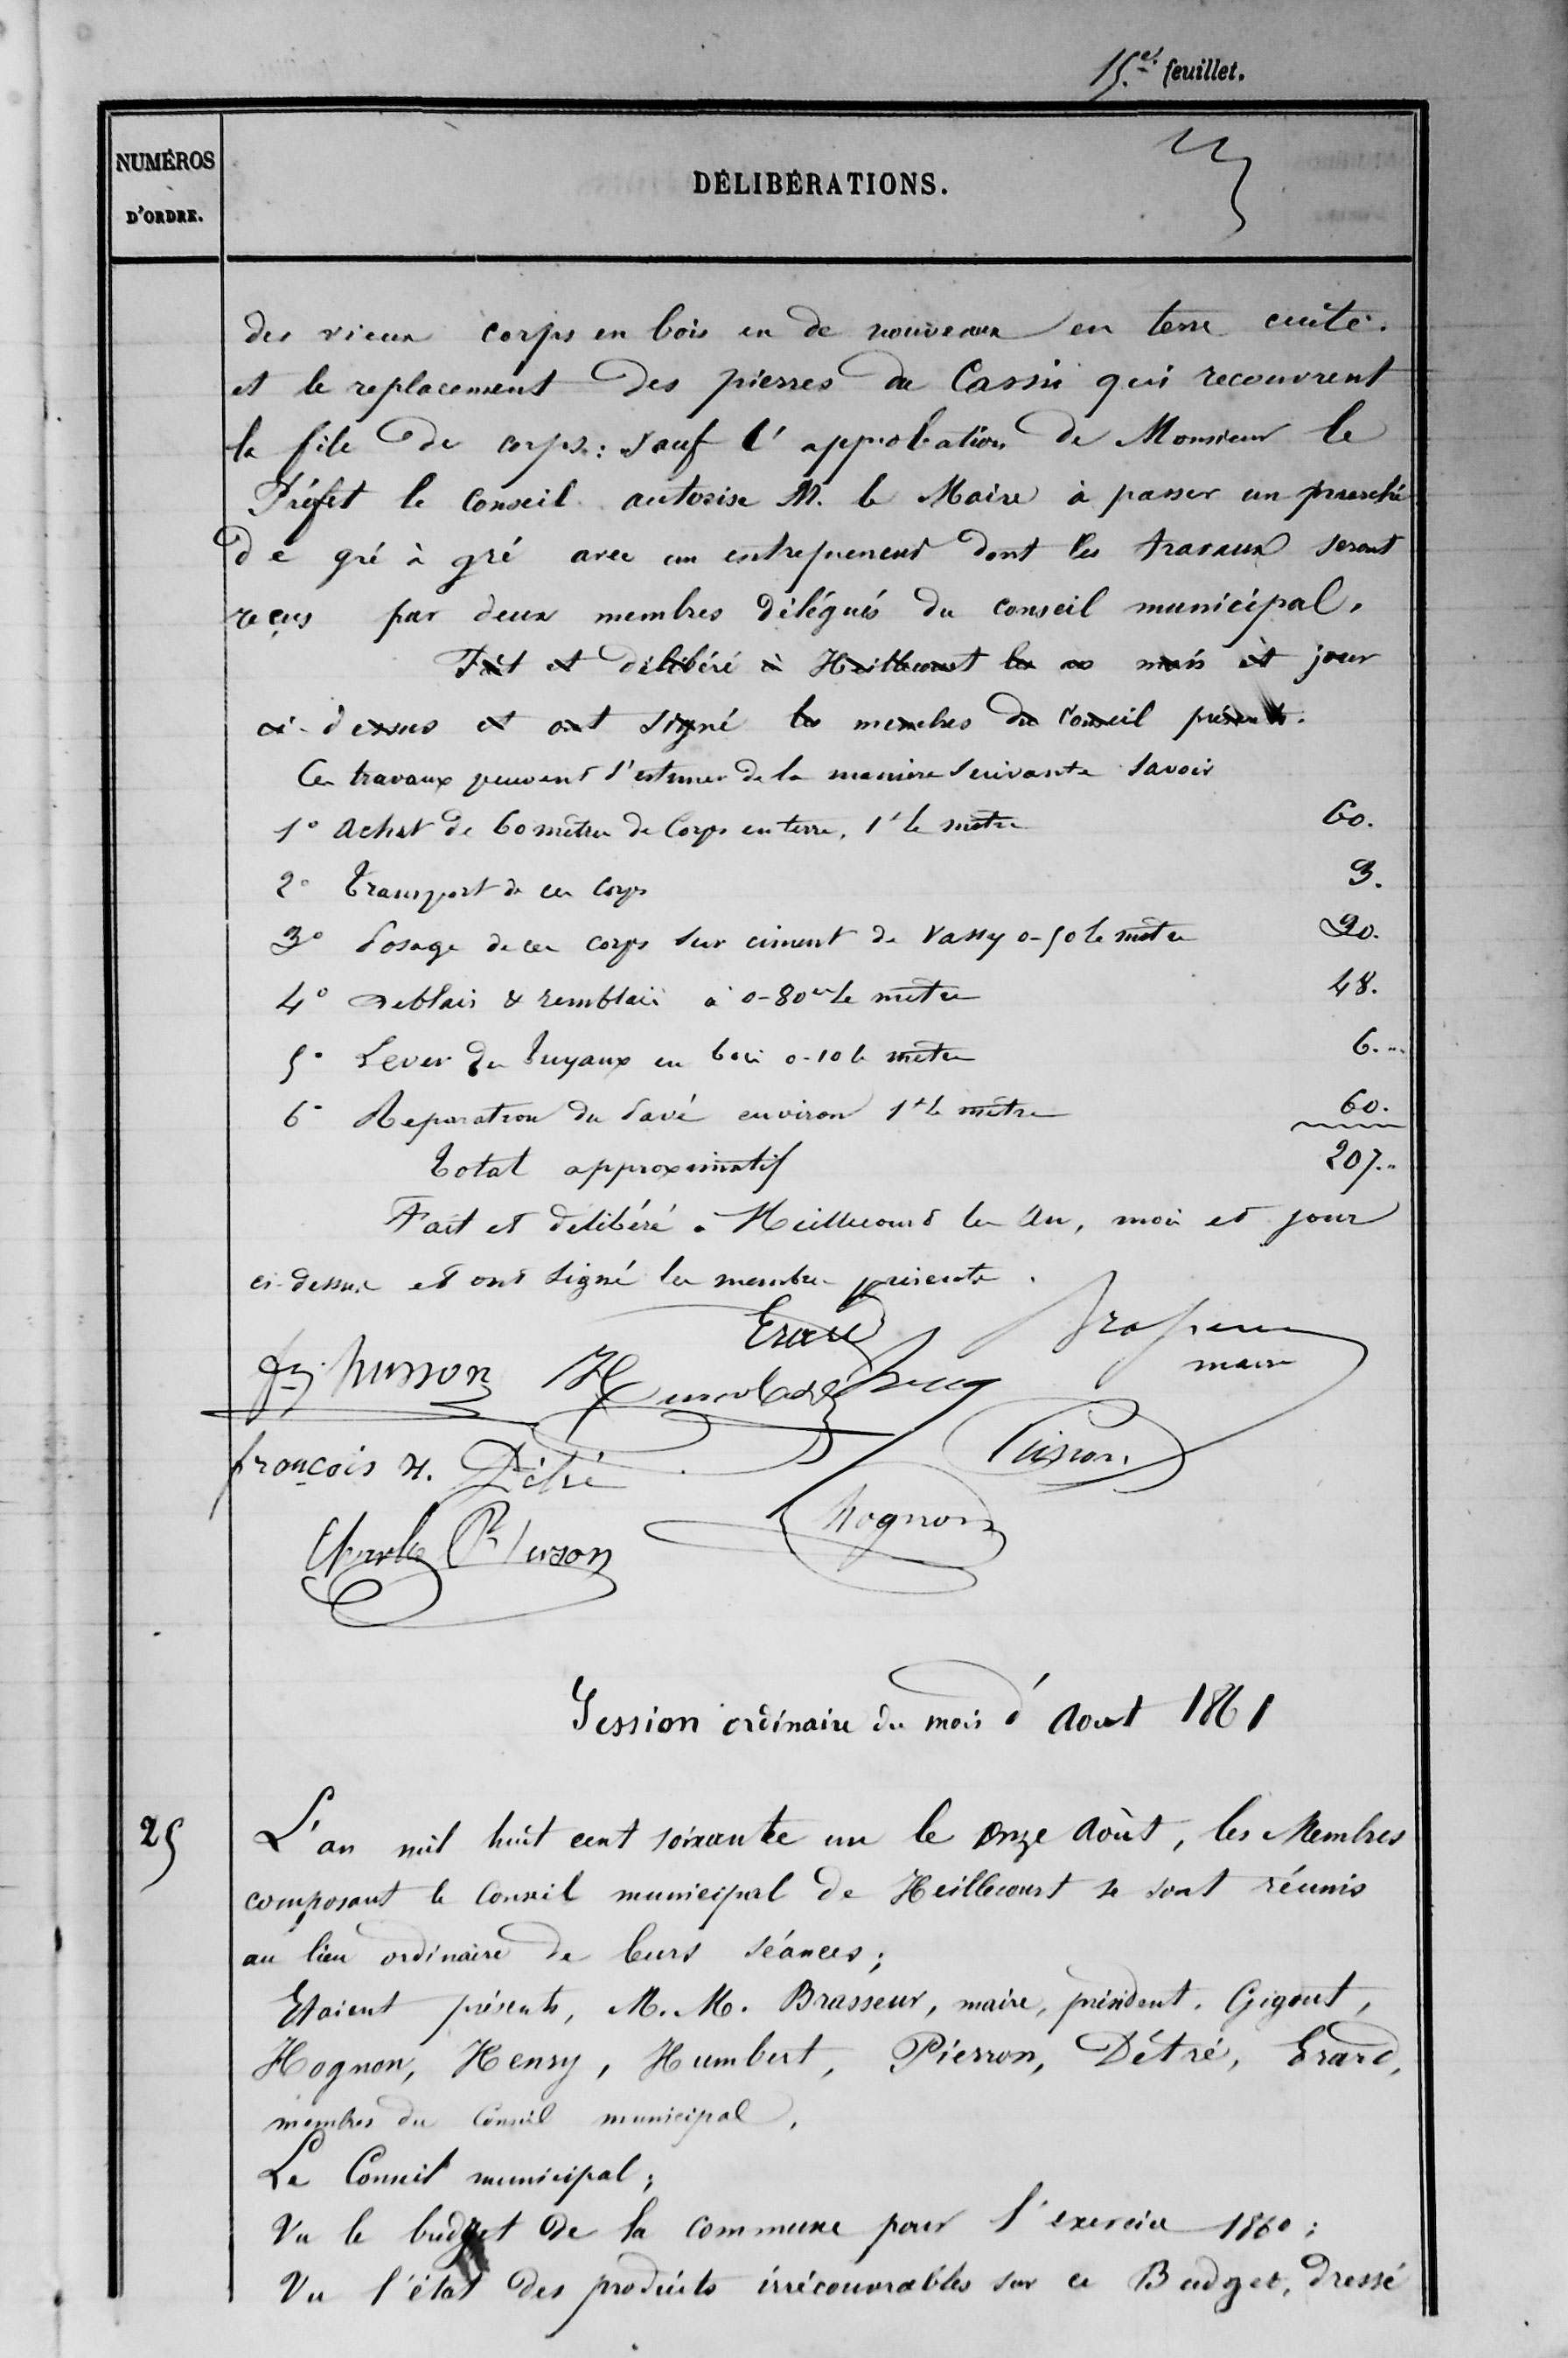 15.et feuillet.
NUMÉROS
D'ORDRE.
DÉLIBÉRATIONS.
des vieux corps en bois en de nouveaux en terre cuite.
et le replacement des pierres du Cassis qui recouvrent
la file de corps: sauf l'approbation de Monsieur le
Préfet le Conseil autorise M. le Maire à passer un marché
de gré à gré avec un entrepreneur dont les travaux seront
reçus par deux membres délégués du conseil municipal.
Fait et délibéré à Heillecourt les an mois et jour
ci-dessus et ont signé les membres du Conseil présents.
Ces travaux peuvent s'estimer de la manière suivante savoir
1° Achat de 60 mètres de Corps en terre, 1f le mètre 60.
2° Transport de ces Corps 3.
3° Posage de ces corps sur ciment de Vassy 0-50 le mètre 30.
4° Deblais & remblais à 0-80c le mètre 48.
5° Lever des Tuyaux en bois 0-10 le mètre 6...
6° Reparation du Pavé environ 1f le mètre 60.
Total approximatif 207..
Fait et délibéré à Heillecourt les An, mois et jour
ci-dessus et ont signé les membres présents.
Erard
Brasseur
maire
husson
françois H. Détré
Pierron
hognon
Charles Husson
Session ordinaire du mois d'Aout 1861
25
L'an mil huit cent soixante un le onze Août, les Membres
composant le Conseil municipal de Heillecourt se sont réunis
au lieu ordinaire de leurs séances;
Etaient présents, M.M. Brasseur, maire, président. Gigout,
Hognon, Henry, Humbert, Pierron, Détré, Erard,
membres du Conseil municipal.
Le Conseil municipal;
Vu le budget de la commune pour l'exercice 1860;
Vu l'état des produits irrécouvrables sur ce Budget, dressé